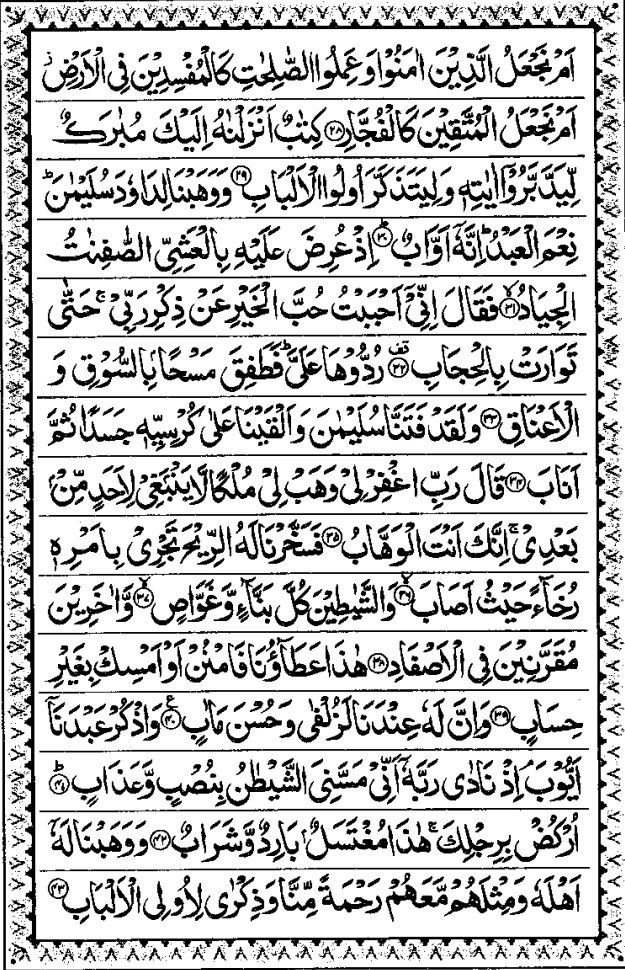 اَمْ نَجْعَلُ الَّذِيْنَ اٰمَنُوْا وَعَمِلُوا الصّٰلِحٰتِ كَالْمُفْسِدِيْنَ فِى الْاَرْضِ ؗ
اَمْ نَجْعَلُ الْمُتَّقِيْنَ كَالْفُجَّارِ ﴿۲۸﴾ كِتٰبٌ اَنْزَلْنٰهُ اِلَيْكَ مُبٰرَكٌ
لِّيَدَّبَّرُوْۤا اٰيٰتِهٖ وَلِيَتَذَكَّرَ اُولُوا الْاَلْبَابِ ﴿۲۹﴾ وَوَهَبْنَا لِدَاوٗدَ سُلَيْمٰنَ ؕ
نِعْمَ الْعَبْدُ ؕ اِنَّهٗۤ اَوَّابٌ ﴿۳۰﴾ ؕ اِذْ عُرِضَ عَلَيْهِ بِالْعَشِىِّ الصّٰفِنٰتُ
الْجِيَادُ ﴿۳۱﴾ ۙ فَقَالَ اِنِّىْۤ اَحْبَبْتُ حُبَّ الْخَيْرِ عَنْ ذِكْرِ رَبِّىْ ۚ حَتّٰى
تَوَارَتْ بِالْحِجَابِ ﴿۳۲﴾ رُدُّوْهَا عَلَىَّ ؕ فَطَفِقَ مَسْحًۢا بِالسُّوْقِ وَ
الْاَعْنَاقِ ﴿۳۳﴾ وَلَقَدْ فَتَنَّا سُلَيْمٰنَ وَاَلْقَيْنَا عَلٰى كُرْسِيِّهٖ جَسَدًا ثُمَّ
اَنَابَ ﴿۳۴﴾ قَالَ رَبِّ اغْفِرْ لِىْ وَهَبْ لِىْ مُلْكًا لَّا يَنْۢبَغِىْ لِاَحَدٍ مِّنْۢ
بَعْدِىْ ۚ اِنَّكَ اَنْتَ الْوَهَّابُ ﴿۳۵﴾ فَسَخَّرْنَا لَهُ الرِّيْحَ تَجْرِىْ بِاَمْرِهٖ
رُخَآءً حَيْثُ اَصَابَ ﴿۳۶﴾ ۙ وَالشَّيٰطِيْنَ كُلَّ بَنَّآءٍ وَّغَوَّاصٍ ﴿۳۷﴾ ۙ وَّاٰخَرِيْنَ
مُقَرَّنِيْنَ فِى الْاَصْفَادِ ﴿۳۸﴾ هٰذَا عَطَآؤُنَا فَامْنُنْ اَوْ اَمْسِكْ بِغَيْرِ
حِسَابٍ ﴿۳۹﴾ وَاِنَّ لَهٗ عِنْدَنَا لَزُلْفٰى وَحُسْنَ مَاٰبٍ ﴿۴۰﴾ وَاذْكُرْ عَبْدَنَاۤ
اَيُّوْبَ ۘ اِذْ نَادٰى رَبَّهٗۤ اَنِّىْ مَسَّنِىَ الشَّيْطٰنُ بِنُصْبٍ وَّعَذَابٍ ﴿۴۱﴾ ؕ
اُرْكُضْ بِرِجْلِكَ ۚ هٰذَا مُغْتَسَلٌۢ بَارِدٌ وَّشَرَابٌ ﴿۴۲﴾ وَوَهَبْنَا لَهٗۤ
اَهْلَهٗ وَمِثْلَهُمْ مَّعَهُمْ رَحْمَةً مِّنَّا وَذِكْرٰى لِاُولِى الْاَلْبَابِ ﴿۴۳﴾